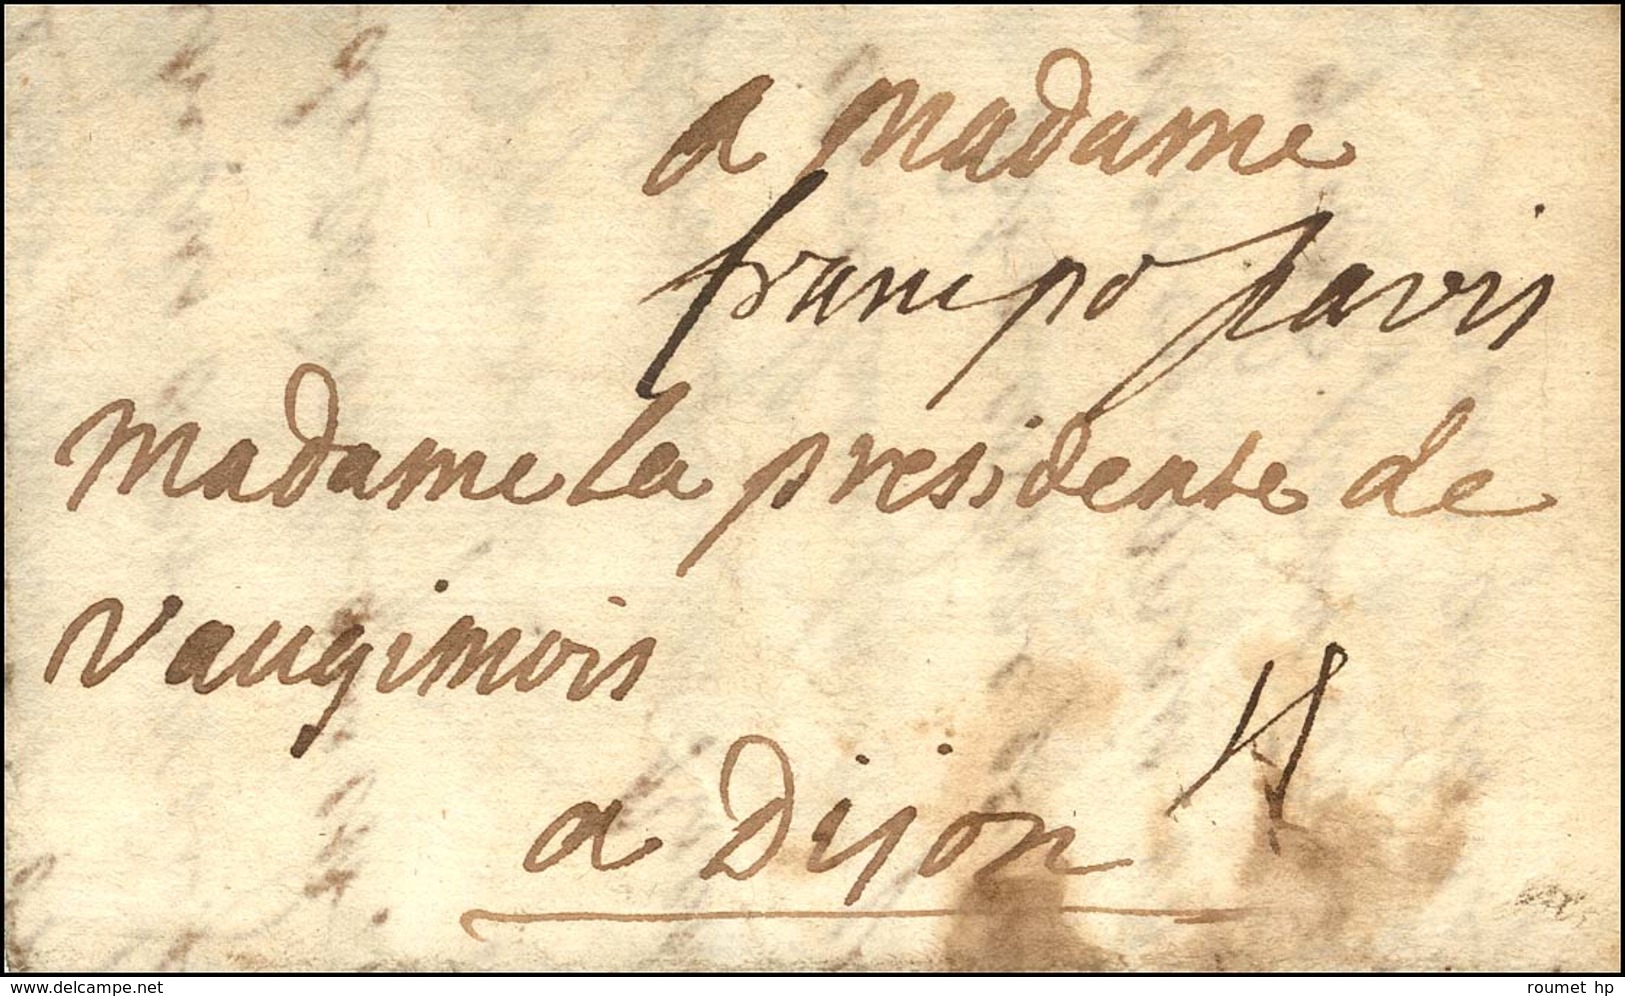 a madame
franc po paris
madame la presidente de
vaugimois
a Dijon
4
www.delcampe.net
roumet hp